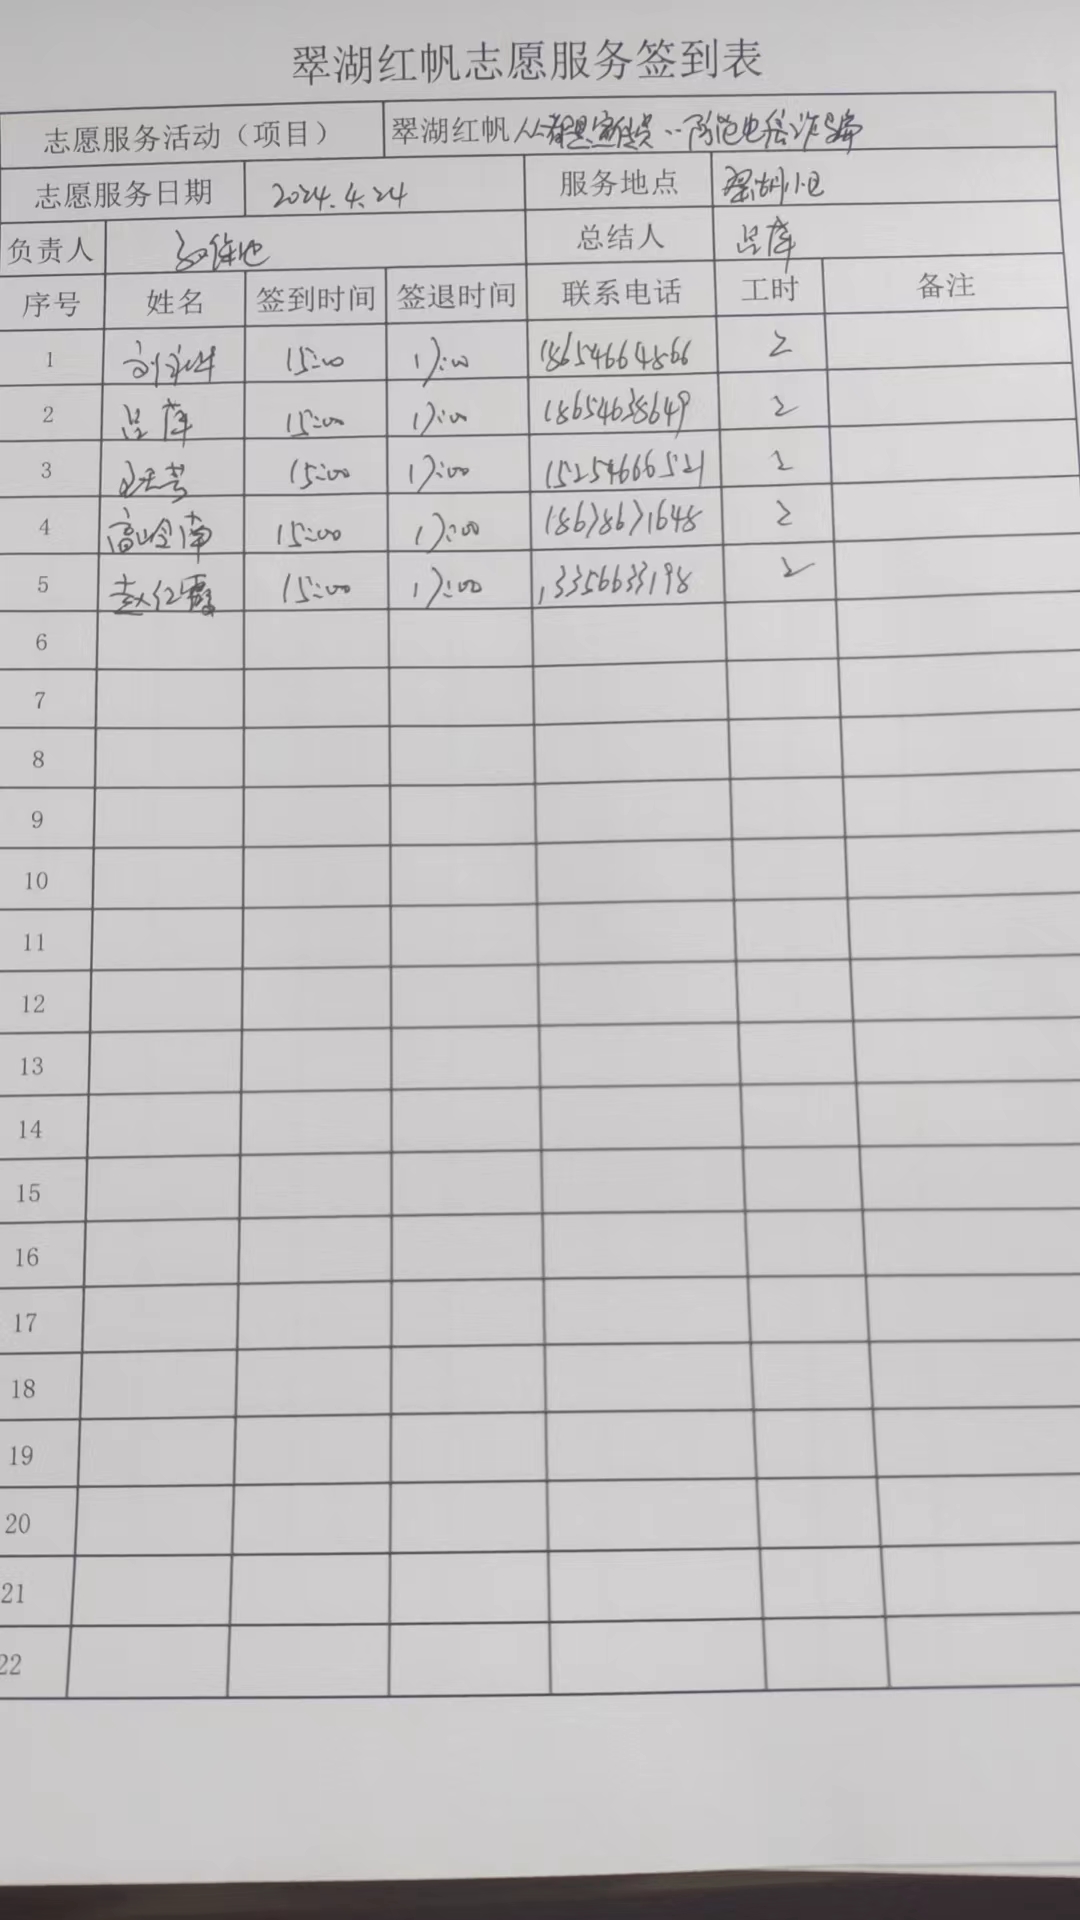 翠湖红帆志愿服务签到表
志愿服务活动（项目） 翠湖红帆人人都是宣传员··防范电信诈骗
志愿服务日期 2024.4.24 服务地点 翠湖小区
负责人 总结人 吕库
序号 姓名 签到时间 签退时间 联系电话 工时 备注
1 15:00 17:00 18654664866 2
2 吕库 15:00 17:00 18654638649 2
3 15:00 17:00 15254666521 2
4 高岭南 15:00 17:00 18678671648 2
5 赵红霞 15:00 17:00 13356633198 2
6
7
8
9
10
11
12
13
14
15
16
17
18
19
20
21
22